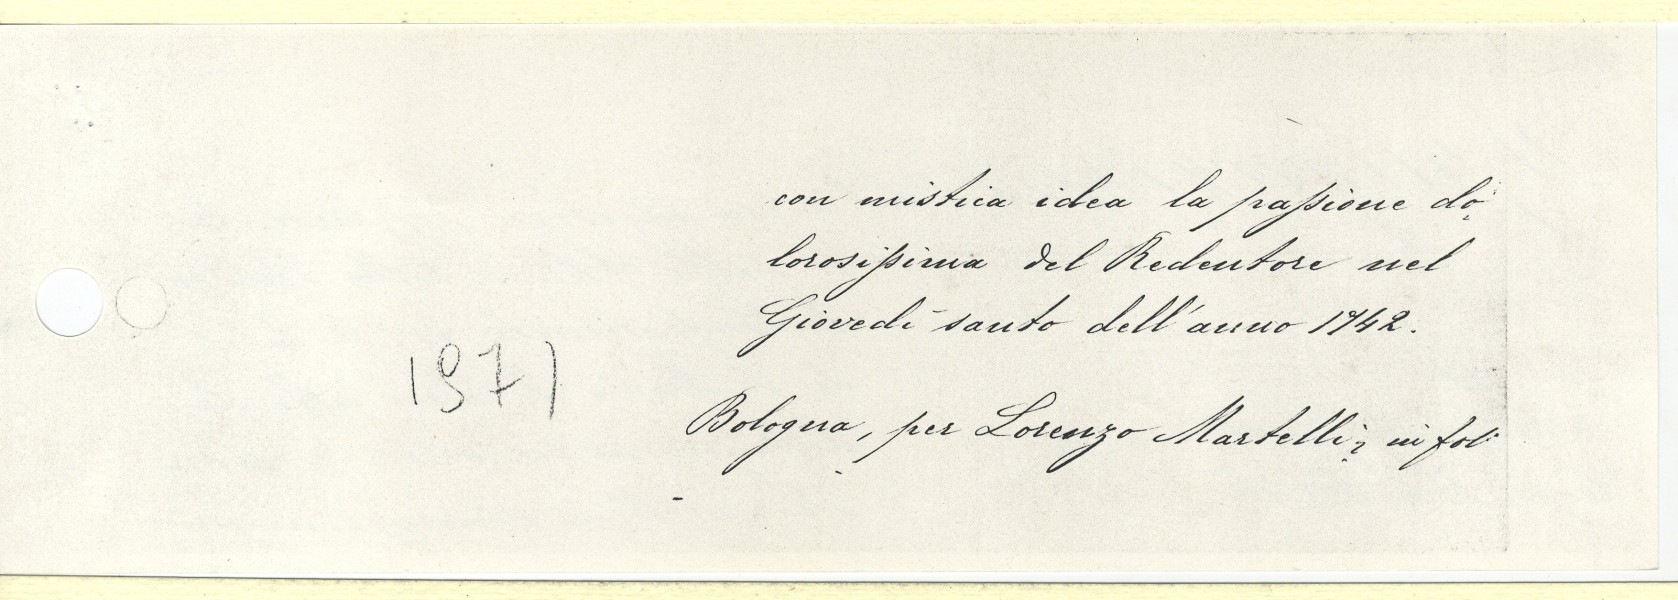 con mistica idea la passione do-
lorosissima del Redentore nel
Giovedì santo dell'anno 1742.
1971
Bologna, per Lorenzo Martelli; in fol.